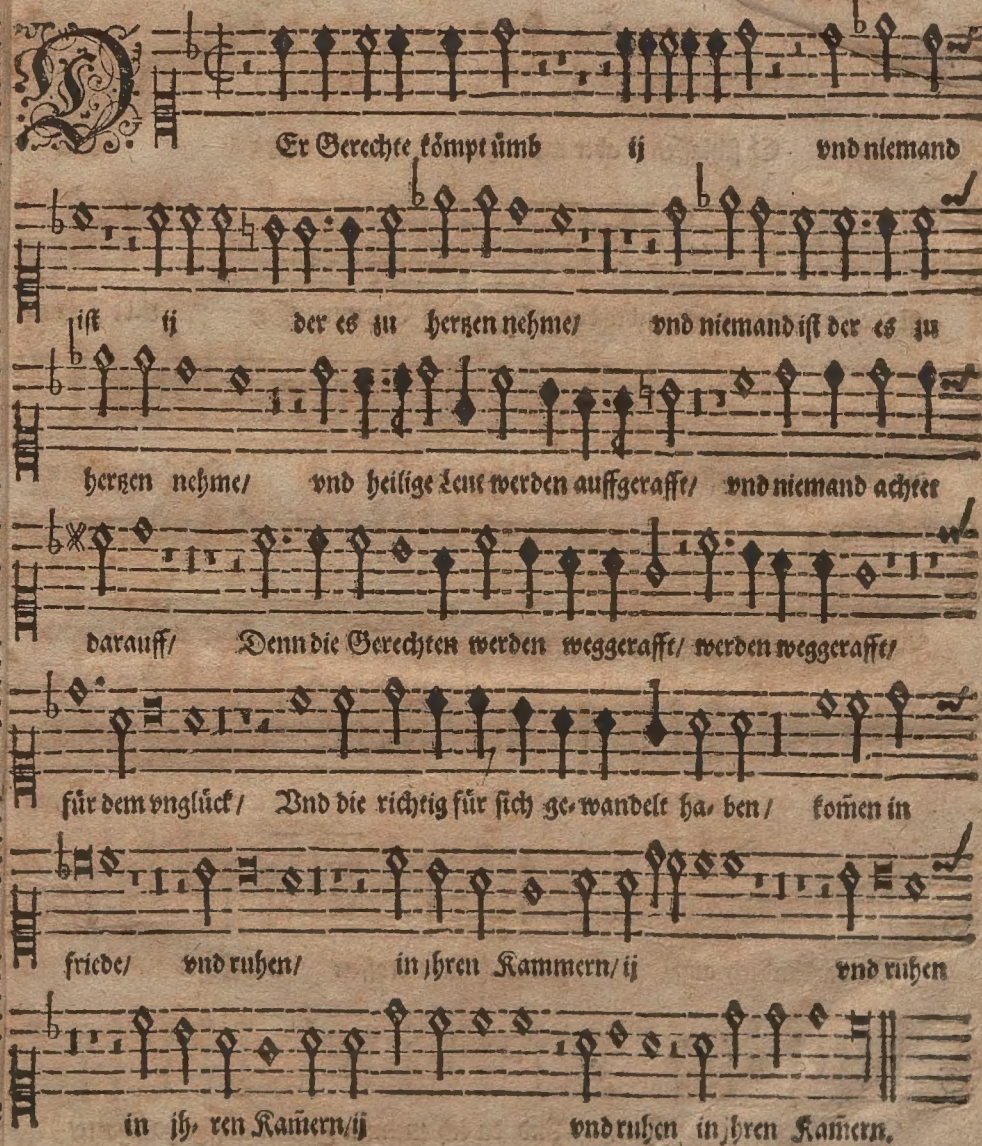 DEr Gerechte kömpt ümb ij vnd niemand
ist ij der es zu hertzen nehme/ vnd niemand ist der es zu
hertzen nehme/ vnd heilige Leut werden auffgerafft/ vnd niemand achtet
darauff/ Denn die Gerechten werden weggerafft/ werden weggerafft/
für dem vnglück/ Vnd die richtig für sich ge- wandelt ha- ben/ kom̄en in
friede/ vnd ruhen/ in jhren Kammern/ ij vnd ruhen
in jh- ren Kam̄ern/ ij vnd ruhen in jhren Kam̄ern.